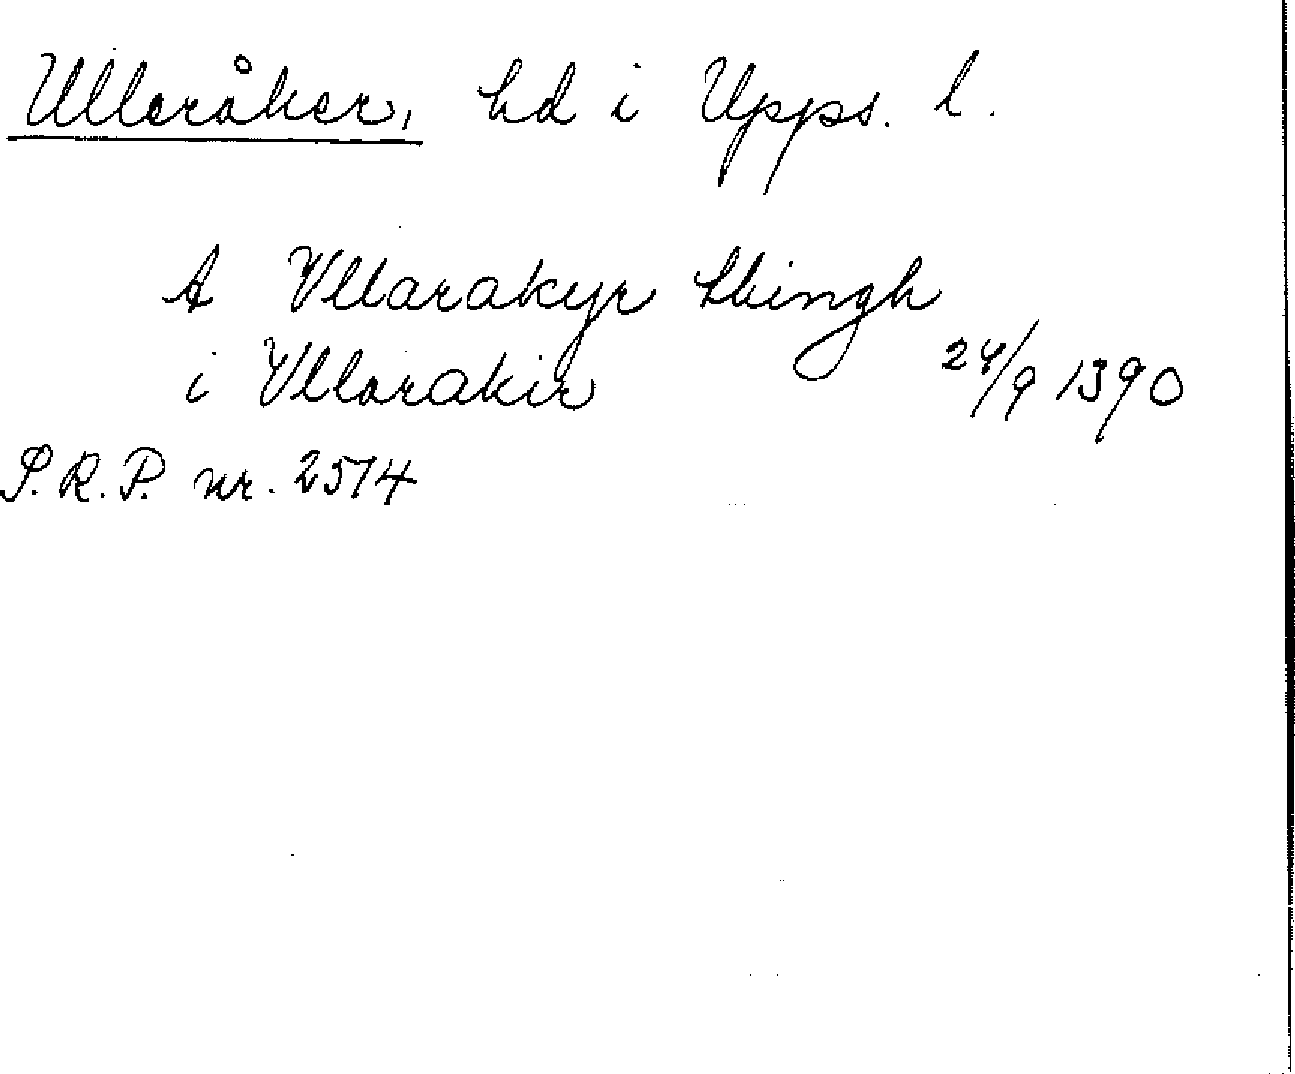 Ulleråker, hd i Upps. l.
A Vllarakyr thingh
i Vllarakir 24/9 1390
S.R.P. nr. 2514